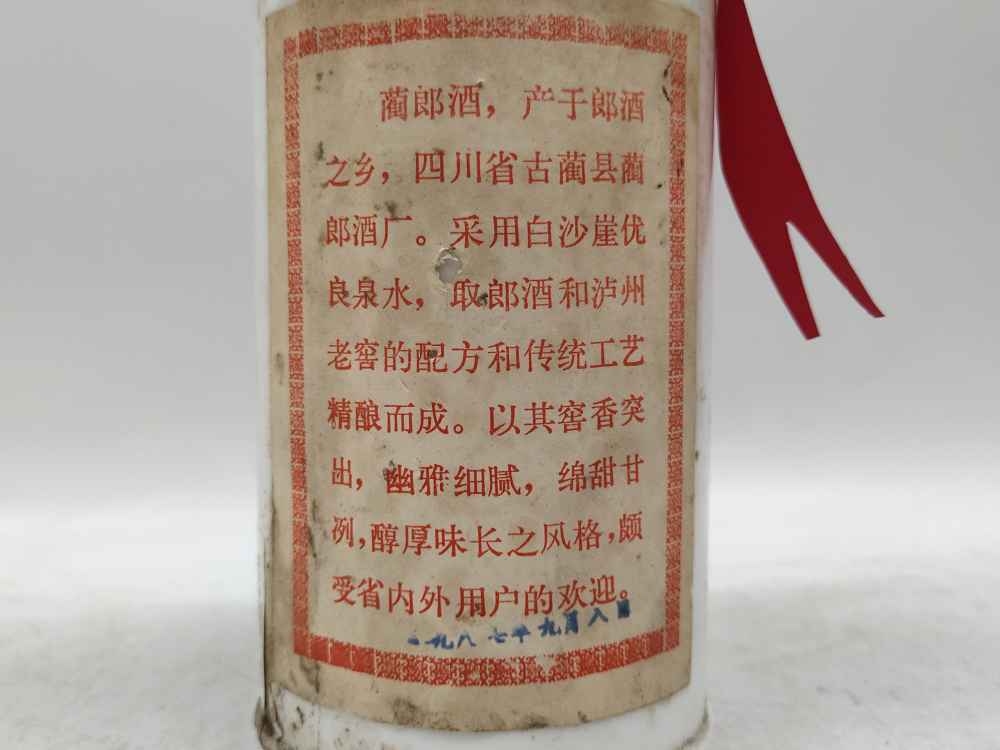 蔺郎酒，产于郎酒
之乡，四川省古蔺县蔺
郎酒厂。采用白沙崖优
良泉水，取郎酒和泸州
老窖的配方和传统工艺
精酿而成。以其窖香突
出，幽雅细腻，绵甜甘
冽，醇厚味长之风格，颇
受省内外用户的欢迎。
一九八七年九月八日